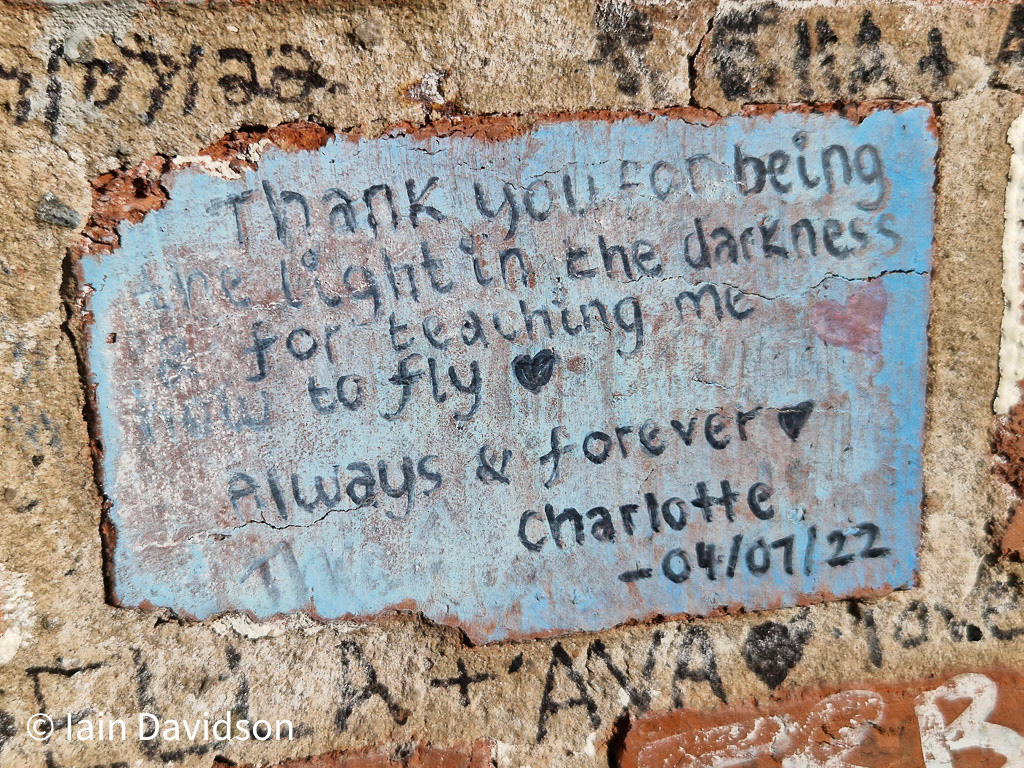 /07/22
Thank you for being
the light in the darkness
& for teaching me
how to fly ♥
Always & forever ♥
Charlotte
-04/07/22
+ AVA ♥
© Iain Davidson